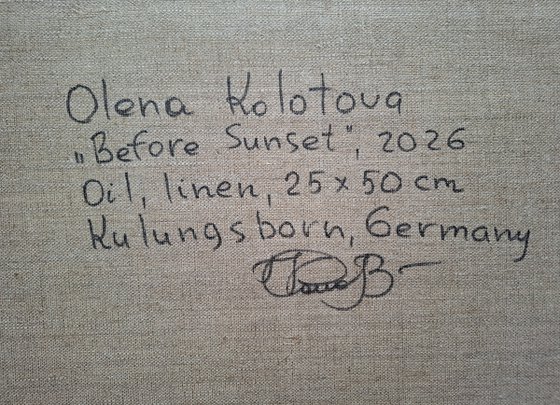 Olena Kolotova
„Before Sunset", 2026
Oil, linen, 25 x 50 cm
Kulungsborn, Germany